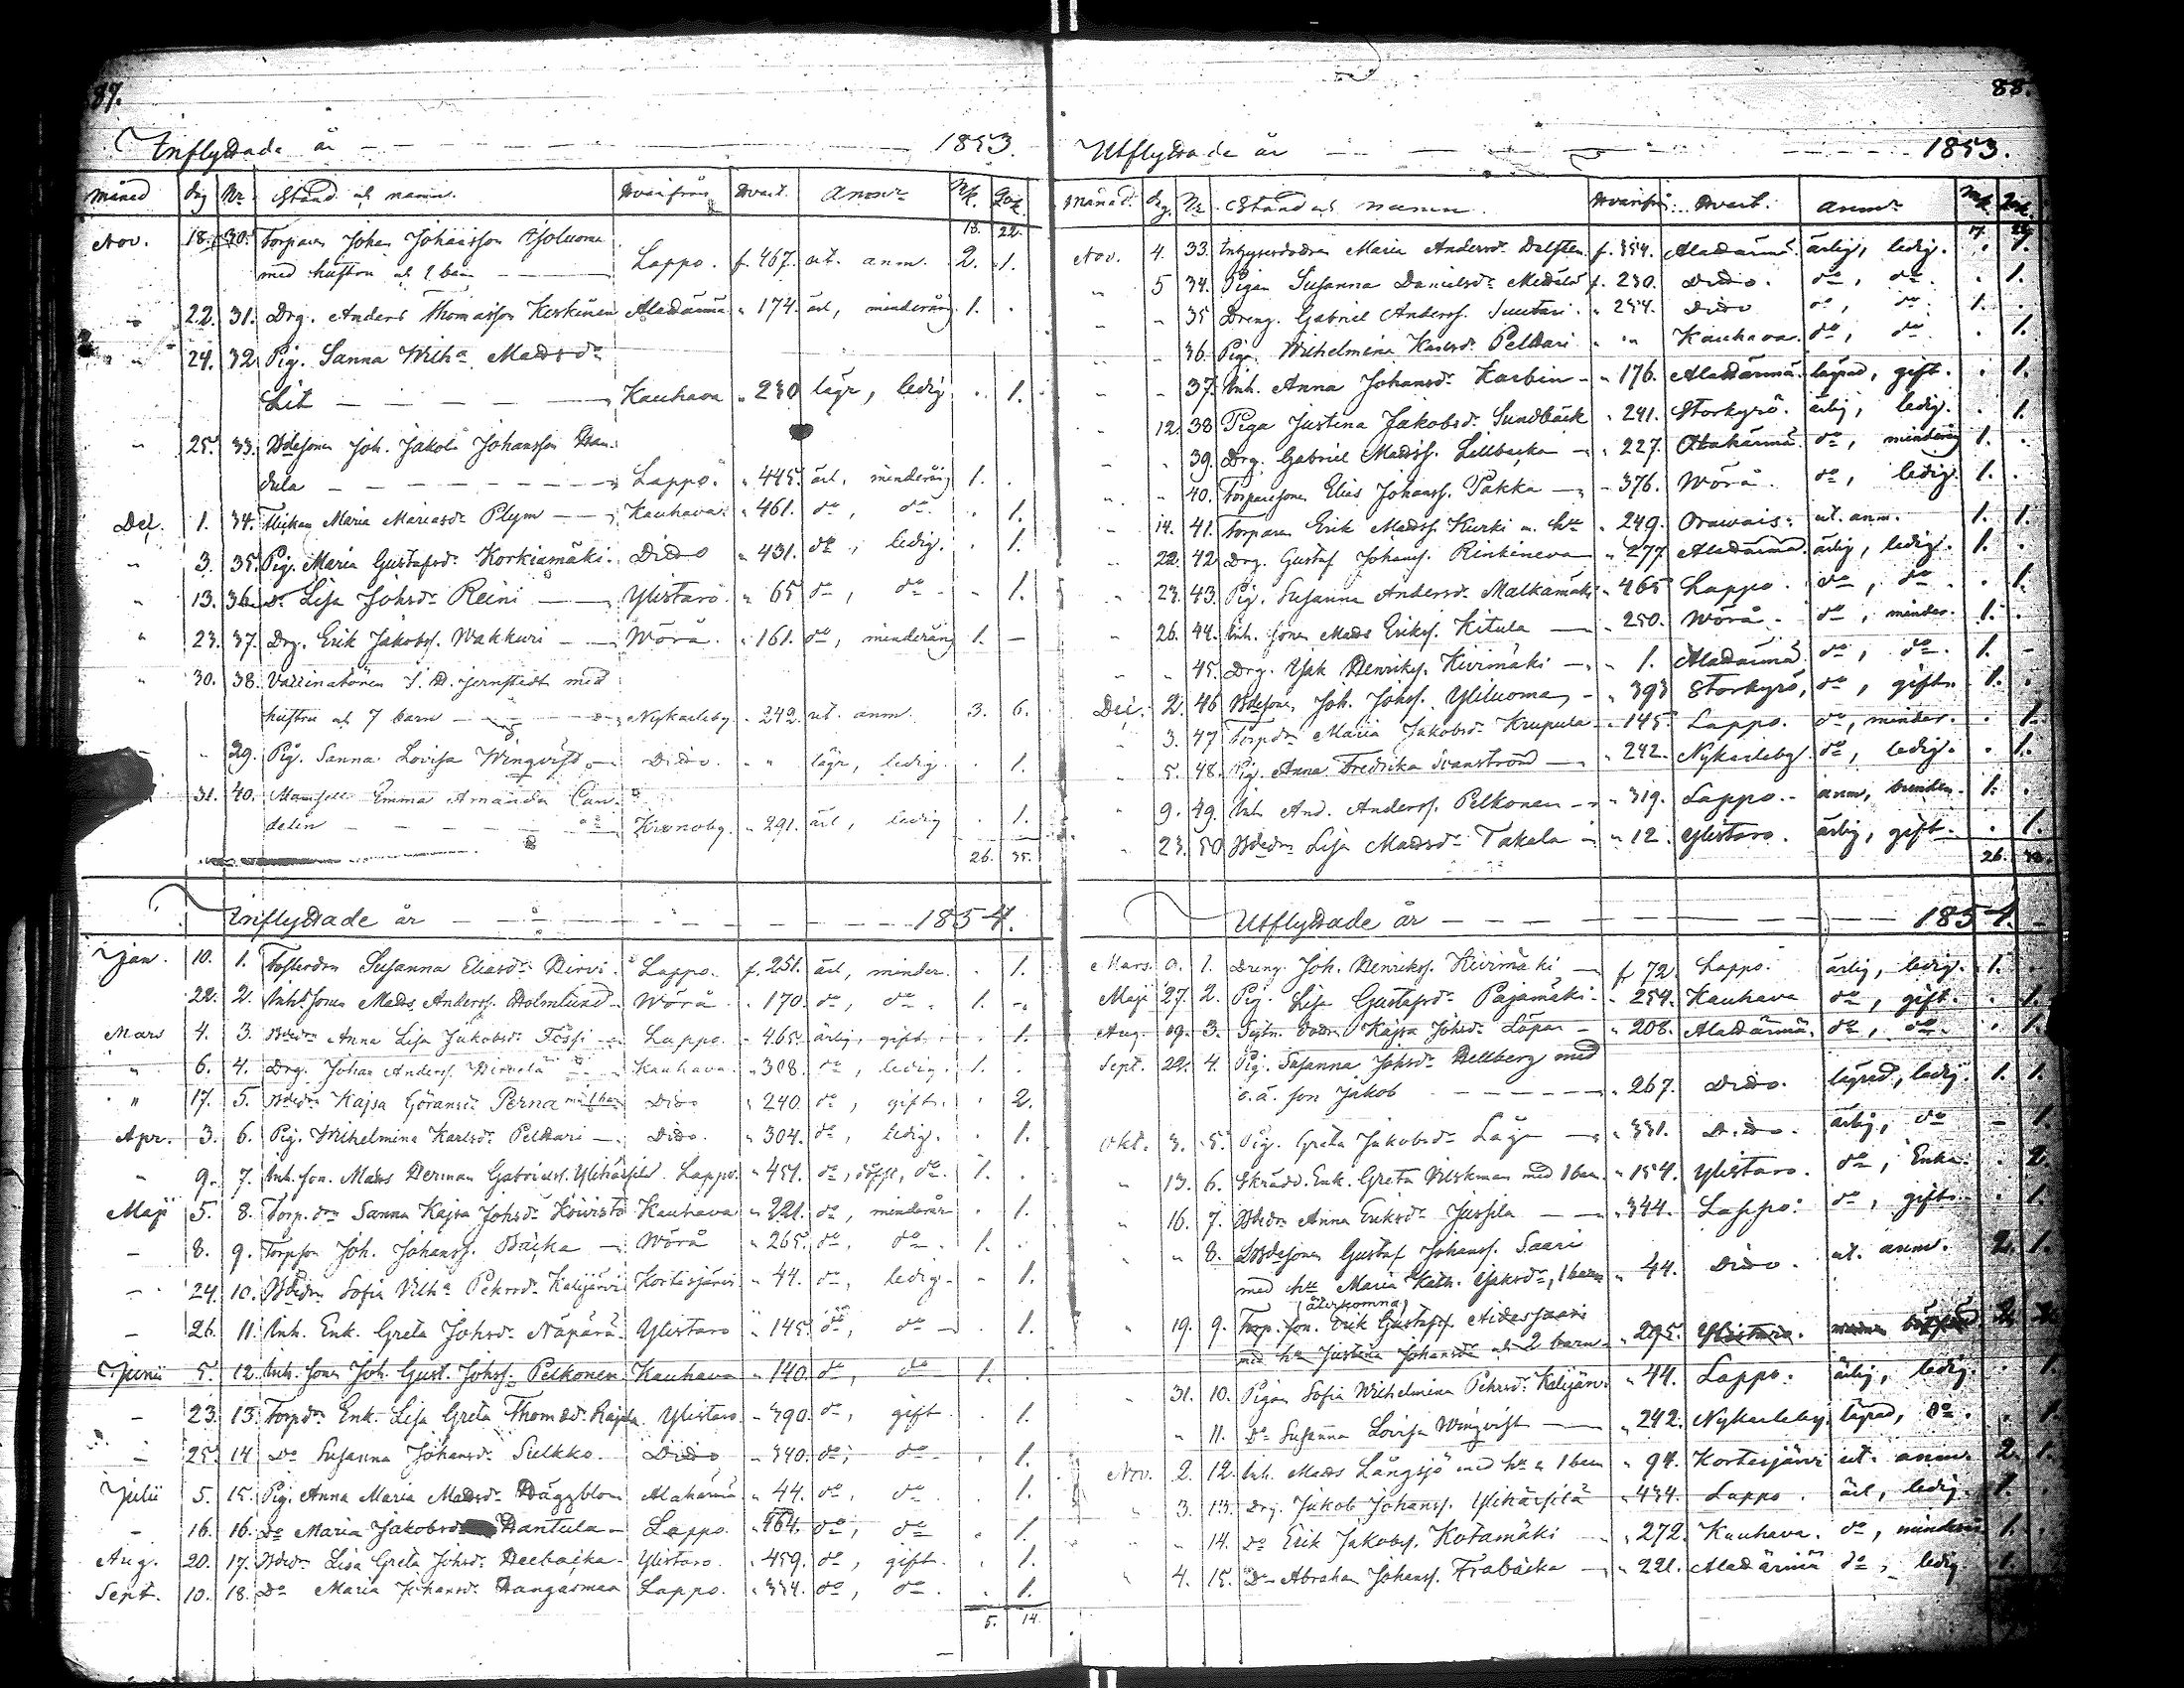 87.
Inflyttade år — — — 1853.
Månad Dag Nr Stånd och namn. Hvarifrån Hvart. Anmr Mk. Qvk.
18. 22.
Nov. 18. 30. Torparen Johan Johansson
med hustru och 2 barn — Lappo. f. 467. ut. anm. 2. 1.
" 22. 31. Drg. Anders Thomasson Keskinen Alahärmä " 174. ärl, minderårig 1. .
" 24. 32. Pig. Sanna Wilha Matsdr
Lit — — — Kauhava " 230 lägr, ledig . 1.
" 25. 33. Bdesonen Joh. Jakob Johansson Han-
dula — — — Lappo. " 445. ärl, minderårig 1. .
Dec. 1. 34. Flickan Maria Mariasdr Plym — Kauhava. " 461. do, do. . 1.
" 3. 35. Pig. Maria Gustafsdr Korkiamäki. Dito " 431. do, ledig. . 1.
" 13. 36. Do Lisa Johsdr Reini — Ylistaro " 65 do, do - . 1.
" 23. 37. Drg. Erik Jakobss. Wakkuri — Wörå. " 161. do, minderårig 1. -
" 30. 38. Vaccinatören J. D. Jernstedt med
hustru och 7 barn — Nykarleby " 242. ut. anm. 3. 6.
" 29. Pig. Sanna Lovisa Winqvist — Dito. " " lägr, ledig. . 1.
31. 40. Mamsell Emma Amanda Can-
delin — — — Kronoby. " 291. ärl, ledig . 1.
26. 35.
Inflyttade år — — — 1854.
Jan. 10. 1. Fosterdtrn Susanna Eliasdr Hirvi. Lappo. f. 251. ärl, minder. . 1.
22. 2. Inh. Sonen Mats Anderss. Holmlund Wörå " 170. do, do. 1. -.
Mars 4. 3. Bdedr Anna Lisa Jakobsdr Fössi — Lappo. " 465. ärlig, gift. . 1.
" 6. 4. Drg. Johan Anderss. Hirvelä — Kauhava. " 308. do, ledig. 1. .
" 17. 5. Bdedr Kajsa Göransdr Perna m. 1 barn Dito " 240. do, gift. . 2.
Apr. 3. 6. Pig. Wilhelmina Karlsdr Peltari — Dito. " 304. do, ledig. . 1.
" 9. 7. Inh. son. Mats Herman Gabrielss. Ylihärsilä. Lappo. " 451. do, do. 1. .
Maji 5. 8. Torp. dr Sanna Kajsa Johsdr Koivisto Kauhava " 221. do, minderår. . 1.
- 8. 9. Torpson Joh. Johanss. Backa — Wörå " 265. do, do. 1. .
- 24. 10. Bdedr Sofia Vilha Pehrsdr Kalijärvi Kortesjärvi " 44. do, ledig - - 1.
- 26. 11. Inh. Enk. Greta Johsdr Näpärä. Ylistaro " 145. do, do - 1.
Junii 5. 12. Inh. Sonen Joh. Gust. Johss. Pelkonen Kauhava " 140. do, do 1. .
- 23. 13. Torpdr Enk. Lisa Greta Thomasdr Ylistaro " 390. do, gift . 1.
- 25. 14 Do Susanna Johansdr Sulkko. Dito " 340. do, do - . 1.
Julii 5. 15. Pig. Anna Maria Matsdr Häggblom Alahärmä " 44. do, do . 1.
- 16. 16. Do Maria Jakobsdr Hantula - Lappo. " 464. do, do . 1.
Aug. 20. 17. Bdedr Lisa Greta Johsdr Ylistaro. " 459. do, gift. . 1.
Sept. 10. 18. Do Maria Johansdr Hangasmaa Lappo. " 334. do, do. . 1.
5. 14.
88.
Utflyttade år — — — 1853.
Månad. Dag. Nr Stånd och namn. Hvarifrån. Hvart. Anmr Mk. Qvk.
17. 29
Nov. 4. 33. Maria Andersdr f. 354. Alahärmä. ärlig, ledig. . 1.
" 5 34. Pigan Susanna Danielsdr f. 230. Dito. do, do. . 1.
" " 35 Dreng. Gabriel Anderss. Suutari. " 254. Dito do, do. 1. .
" - 36. Pig. Wilhelmina Karlsdr Peltari " " Kauhava. do, do . 1.
" - 37. Inh. Anna Johansdr Karbin - " 176. Alahärmä. lägrad, gift. . 1.
" 12. 38 Piga Justina Jakobsdr Sundbäck " 241. Storkyrö. ärlig, ledig. . 1.
" " 39. Drg. Gabriel Matss. Lillbacka — " 227. Alahärmä do, minderårig 1. .
" " 40. Torparesonen Elias Johanss. Pakka — " 376. Wörå. do, ledig. 1. .
" 14. 41. Torparen Erik Matss. Kurki m. hu " 249. Orawais. ut. anm. 1. 1.
" 22. 42 Drg. Gustaf Johanss. Rinkineva " 277. Alahärmä. ärlig, ledig. 1. .
" 23. 43. Pig. Susanna Andersdr Malkamäki " 465 Lappo. do, do . 1.
" 26. 44. Inh. sonen Mats Erikss. Kitula — " 250. Wörå. do, minder. 1. .
" " 45. Drg. Isak Henrikss. Kivimäki — " 1. Alahärmä. do, do. 1. -
Dec. 2. 46 Bdesonen Joh. Johss. Yliluoma - " 393 Storkyrö, do, gift. 1. .
" 3. 47 Torpdr Maria Jakobsdr Krupula " 145. Lappo. do, minder. . 1.
" 5. 48. Pig. Anna Fredrika Svanström — " 242. Nykarleby. do, ledig. . 1.
" 9. 49. Inh. And. Anderss. Pelkonen — " 319. Lappo. - anm, 1. .
" 23. 50 Bdedr Lisa Matsdr Takala — " 12. Ylistaro. ärlig, gift. . 1.
26.
Utflyttade år — — — 1854.
Mars 1. Dreng. Joh. Henrikss. Kivimäki — f. 72. Lappo. ärlig, ledig. 1. .
Maji 27. 2. Pig. Lisa Gustafsdr Pajamäki - " 254. Kauhava do, gift. . 1.
Aug. 19. 3. Kajsa Johsdr — " 208. Alahärmä. do, do. . 1.
Sept. 22. 4. Pig. Susanna Johsdr Hellberg med
o.ä. son Jakob — — " 267. Dito. lägrad, ledig. 1. 1.
Okt. 3. 5. Pig. Greta Jakobsdr Låge — " 331. Dito. ärlig, do - 1.
" 13. 6. Skrädd. Enk. Greta Vilskman med 1 barn. " 154. Ylistaro. do, Enka. . 2.
" 16. 7. Bdedr Anna Eriksdr Jussila — " 344. Lappo. do, gift. . 1.
" " 8. Bdesonen Gustaf Johanss. Saari
med hu Maria Kath. Isaksdr, 1 barn " 44. Dito. ut. anm. 2. 1.
(återkomna)
" 19. 9. Torp. son. Erik Gustafss.
med hu Justina Johansdr och 2 barn " 295. Ylistaro.
" 31. 10. Pigan Sofia Wilhelmina Pehrsdr Kalijärvi " 44. Lappo. ärlig, ledig. . 1.
" 11. Do Susanna Lovisa Winqvist — " 242. Nykarleby. lägrad, do. . 1.
Nov. 2. 12. Inh. Mats Långsjö med hu o 1 barn " 94. Kortesjärvi ut. anm. 2. 1.
" 3. 13. Drg. Jakob Johanss. Ylihärsilä " 434. Lappo. ärl, ledig. 1. .
" " 14. Do Erik Jakobss. Kotamäki " 272. Kauhava. do, minderår 1. .
" 4. 15. Do Abraham Johanss. Frabacka — " 221. Alahärmä do, ledig. 1.